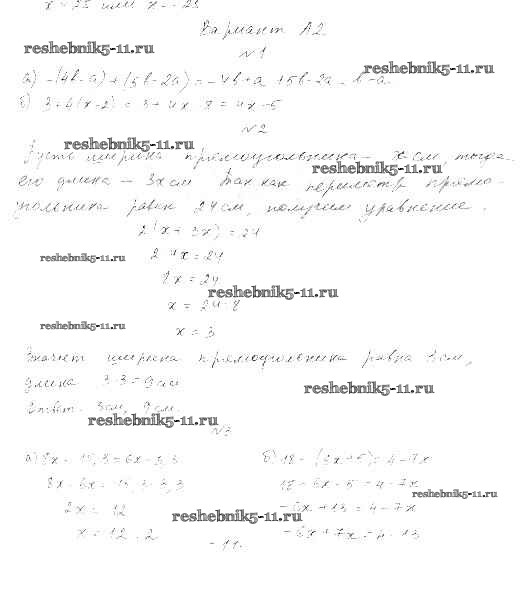 x = 23 или x = -23
Вариант А2
№1
reshebnik5-11.ru
reshebnik5-11.ru
а) -(4b-a)+(5b-2a) = -4b+a+5b-2a = b-a
reshebnik5-11.ru
№2
reshebnik5-11.ru
Пусть ширина прямоугольника – x см, тогда
reshebnik5-11.ru
его длина – 3x см. Так как периметр прямо-
угольника равен 24 см, получим уравнение.
2(x + 3x) = 24
reshebnik5-11.ru
2 4x = 24
8x = 24
reshebnik5-11.ru
x = 24 : 8
reshebnik5-11.ru
x = 3
Значит ширина прямоугольника равна 3 см,
длина 3·3 = 9 см
reshebnik5-11.ru
Ответ: 3 см, 9 см.
reshebnik5-11.ru
№3
а) 8x - 15,3 = 6x - 3,3
8x - 6x = 15,3 - 3,3
2x = 12
x = 12 : 2
б) 18 - (6x+5) = 4-7x
18 - 6x - 5 = 4 - 7x
reshebnik5-11.ru
-6x + 13 = 4 - 7x
-6x + 7x = 4 - 13
reshebnik5-11.ru
- 11.